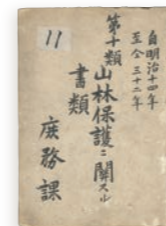 自明治十四年
至仝三十二年
11
第十類
山林保護ニ關スル
書類
庶務課